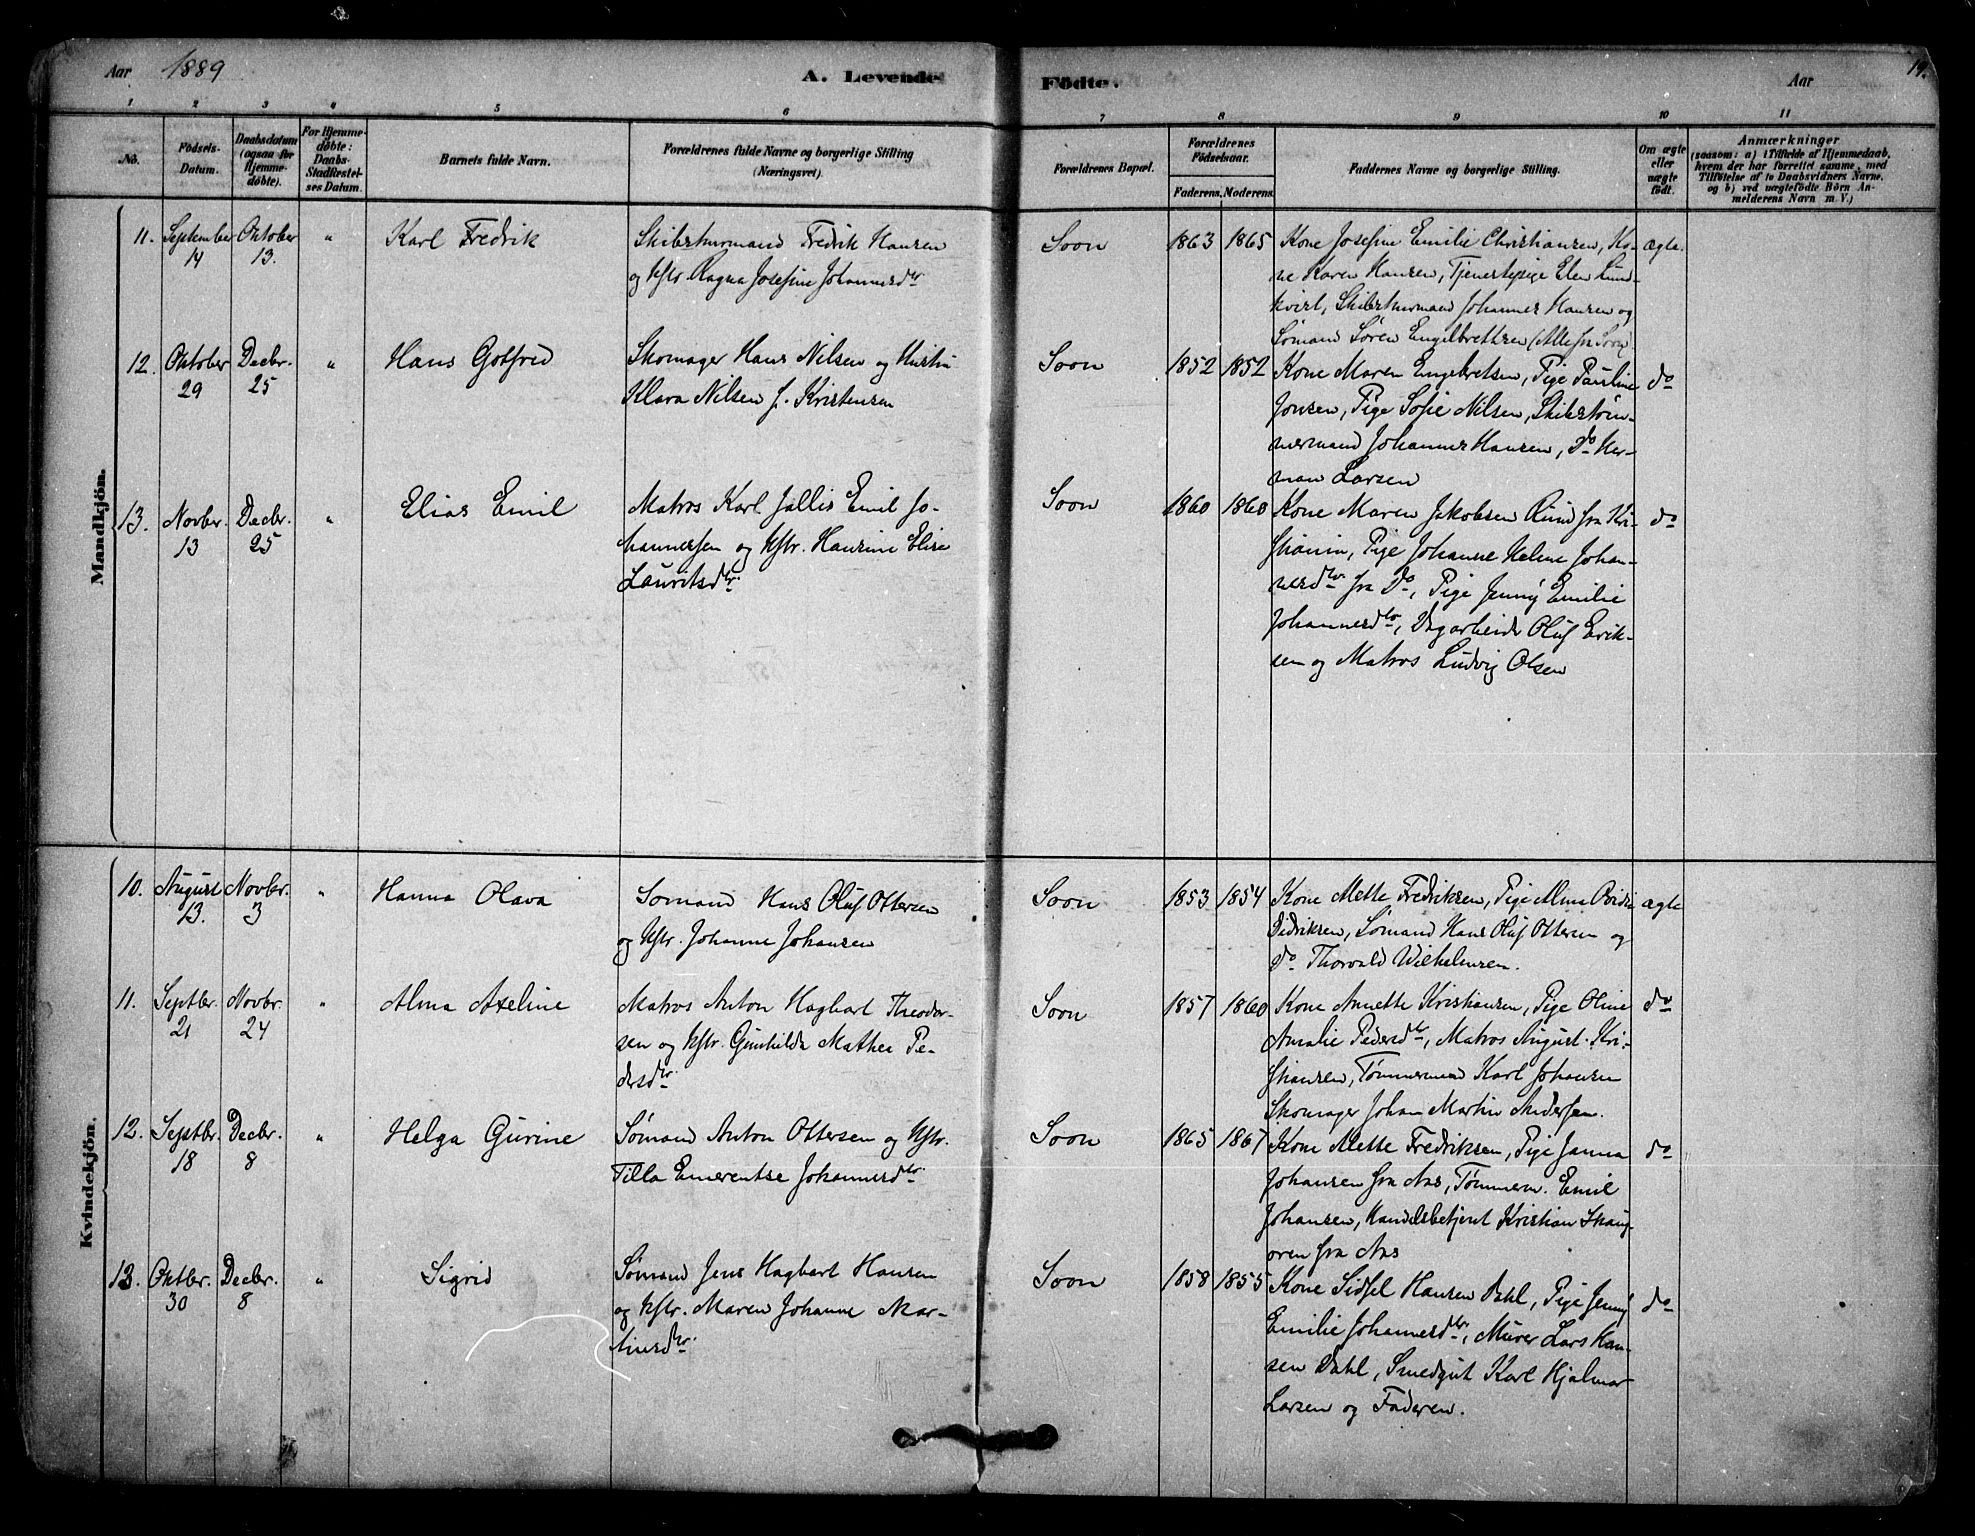 Aar 1889 A. Levende Födte. Aar 19.
1 2 3 4 5 6 7 8 9 10 11
No. Födsels-Datum. Daabsdatum (ogsaa for Hjemmedöbte). For Hjemmedöbte: Daabs-Stadfæstelses Datum. Barnets fulde Navn. Forældrenes fulde Navne og borgerlige Stilling (Næringsvei). Forældrenes Bopæl. Forældrenes Födselsaar. Faderens. Moderens. Faddernes Navne og borgerlige Stilling. Om ægte eller uægte födt. Anmærkninger (saasom: a) i Tilfælde af Hjemmedaab, hvem der har forrettet samme, med Tilföielse af to Daabsvidners Navne, og b) ved uægtefödte Börn Anmelderens Navn m. V.)
Mandkjön.
11. September 14 Oktober 13. " Karl Fredrik
Fredrik Hansen
og Hstr. Ragna Josefine Johannesdtr
Soon 1863 1865
Kone Josefine Emilie Christiansen, Ko-
ne Karen Hansen, Tjenestepige Elen Lund-
kvist, Johannes Hansen og
Sømand Søren Engelbrettsen (Alle fra Soon)
ægte.
12. Oktober 29 Decbr. 25 " Hans Gotfred
Skomager Hans Nilsen og Hustru
Klara Nilsen f. Kristensen
Soon 1852 1852
Kone Maren Engebretsen, Pige Pauline
Jonsen, Pige Sofie Nilsen, Skibstøm-
mermand Johannes Hansen, do Her-
man Larsen
do
13. Novbr. 13 Decbr. 25 " Elias Emil
Matros Karl Jallis Emil Jo-
hannessen og Hstr. Hansine Elise
Lauritsdtr.
Soon 1860 1860
Kone Maren Jakobsen Rund fra Kri-
stiania, Pige Johanne Helene Johan-
nesdtr fra do, Pige Jenny Emilie
Johannesdtr, Dagarbeider Oluf Erik-
sen og Matros Ludvig Olsen
do
Kvindekjön.
10. August 13. Novbr. 3 " Hanna Olava
Sømand Hans Oluf Ottersen
og Hstr. Johanne Johansen
Soon 1853 1854
Kone Mette Fredriksen, Pige Alma
Didriksen, Sømand Hans Oluf Ottersen og
do. Thorvald Wilhelmsen.
ægte
11. Septbr. 21 Novbr. 24 " Alma Axeline
Matros Anton Hagbart Theodor-
sen og Hstr. Gunhilda Mathea Pe-
dersdtr.
Soon 1857 1860
Kone Annette Kristiansen, Pige Oline
Amalie Pedersdtr, Matros August Kri-
stiansen, Tømmermand Karl Johansen
Skomager Johan Martin Andersen.
do
12. Septbr. 18 Decbr. 8 " Helga Gurine
Sømand Anton Ottersen og Hstr.
Tilla Emerentse Johannesdtr.
Soon 1865 1867
Kone Mette Fredriksen, Pige Janna
Johansen fra Aas, Tømmerm. Emil
Johansen, Handelsbetjent Kristian Skaug-
oren fra Aas
do
13. Oktbr. 30 Decbr. 8 " Sigrid
Sømand Jens Hagbart Hansen
og Hstr. Maren Johanne Mar-
tinsdtr.
Soon 1858 1855
Kone Sidsel Hansen Dahl, Pige Jenny
Emilie Johannesdtr., Murer Lars Han-
sen Dahl, Smedgut Karl Hjalmar
Larsen og Faderen.
do